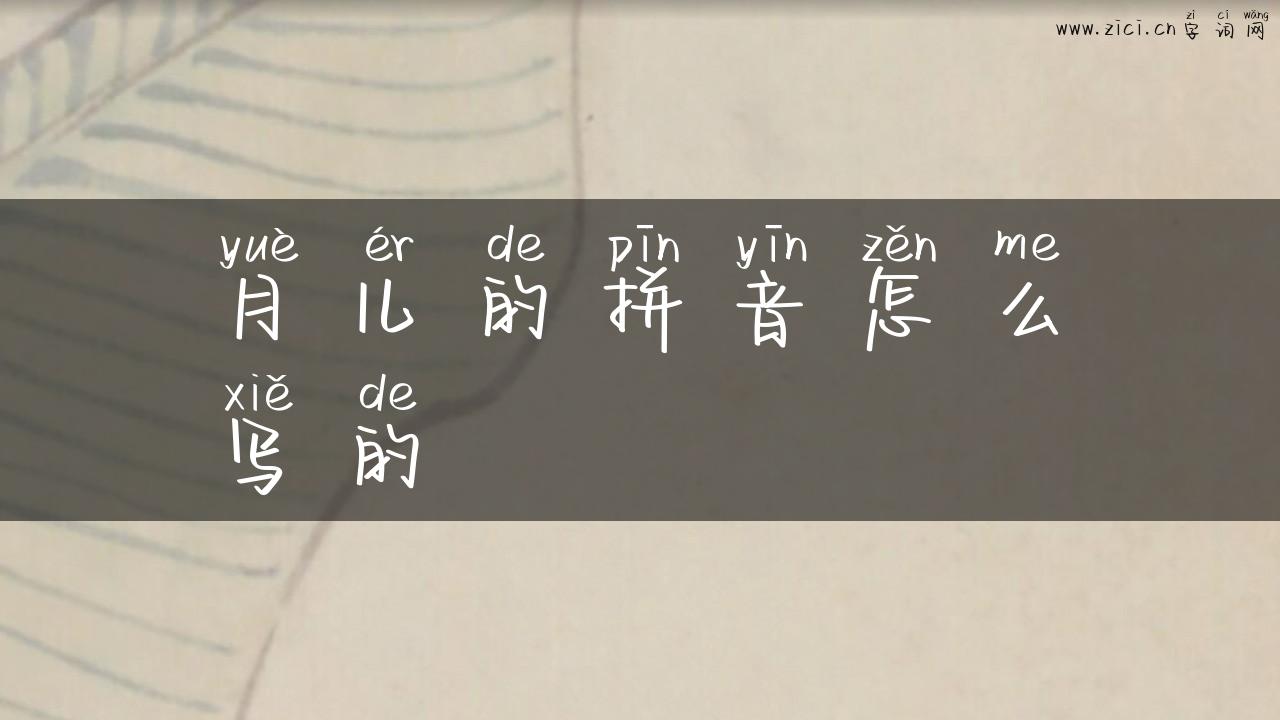 zì cí wǎng
www.zici.cn 字 词 网
yuè ér de pīn yīn zěn me
月 儿 的 拼 音 怎 么
xiě de
写 的